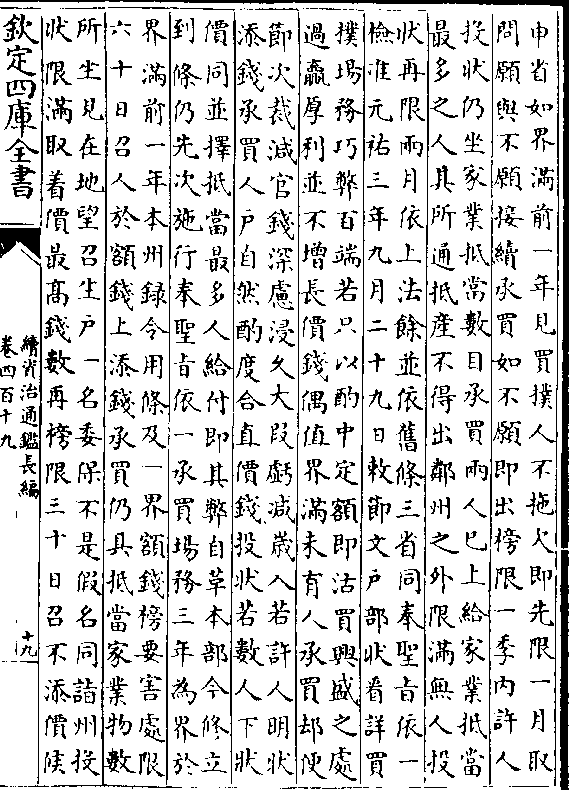 申省如界滿前一年見買撲人不拖欠即先限一月取
問願與不願接續承買如不願即出榜限一季内許人
投狀仍坐家業抵當數目承買兩人已上給家業抵當
最多之人其所通抵産不得出鄰州之外限滿無人投
狀再限兩月依上法餘並依舊條三省同奉聖旨依一
檢准元祐三年九月二十九日敕節文戸部狀看詳買
撲場務巧弊百端若只以酌中定額即沽買興盛之處
過贏厚利並不增長價錢偶值界滿未有人承買却便
節次裁減官錢深慮浸久大段虧減歳入若許人明狀
添錢承買人戸自然酌度合直價錢投狀若數人下狀
價同並擇抵當最多人給付即其弊自革本部今修立
到條仍先次施行奉聖旨依一承買場務三年為界於
界滿前一年本州録今用條及一界額錢榜要害處限
六十日召人於額錢上添錢承買仍具抵當家業物數
所坐見在地望召生戸一名委保不是假名同詣州投
狀限滿取着價最髙錢數再榜限三十日召不添價候
欽定四庫全書
續資治通鑑長編
卷四百十九
十九